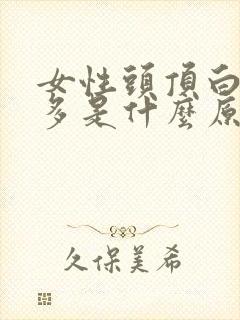 女性頭頂白
多是什麼原
久保美希